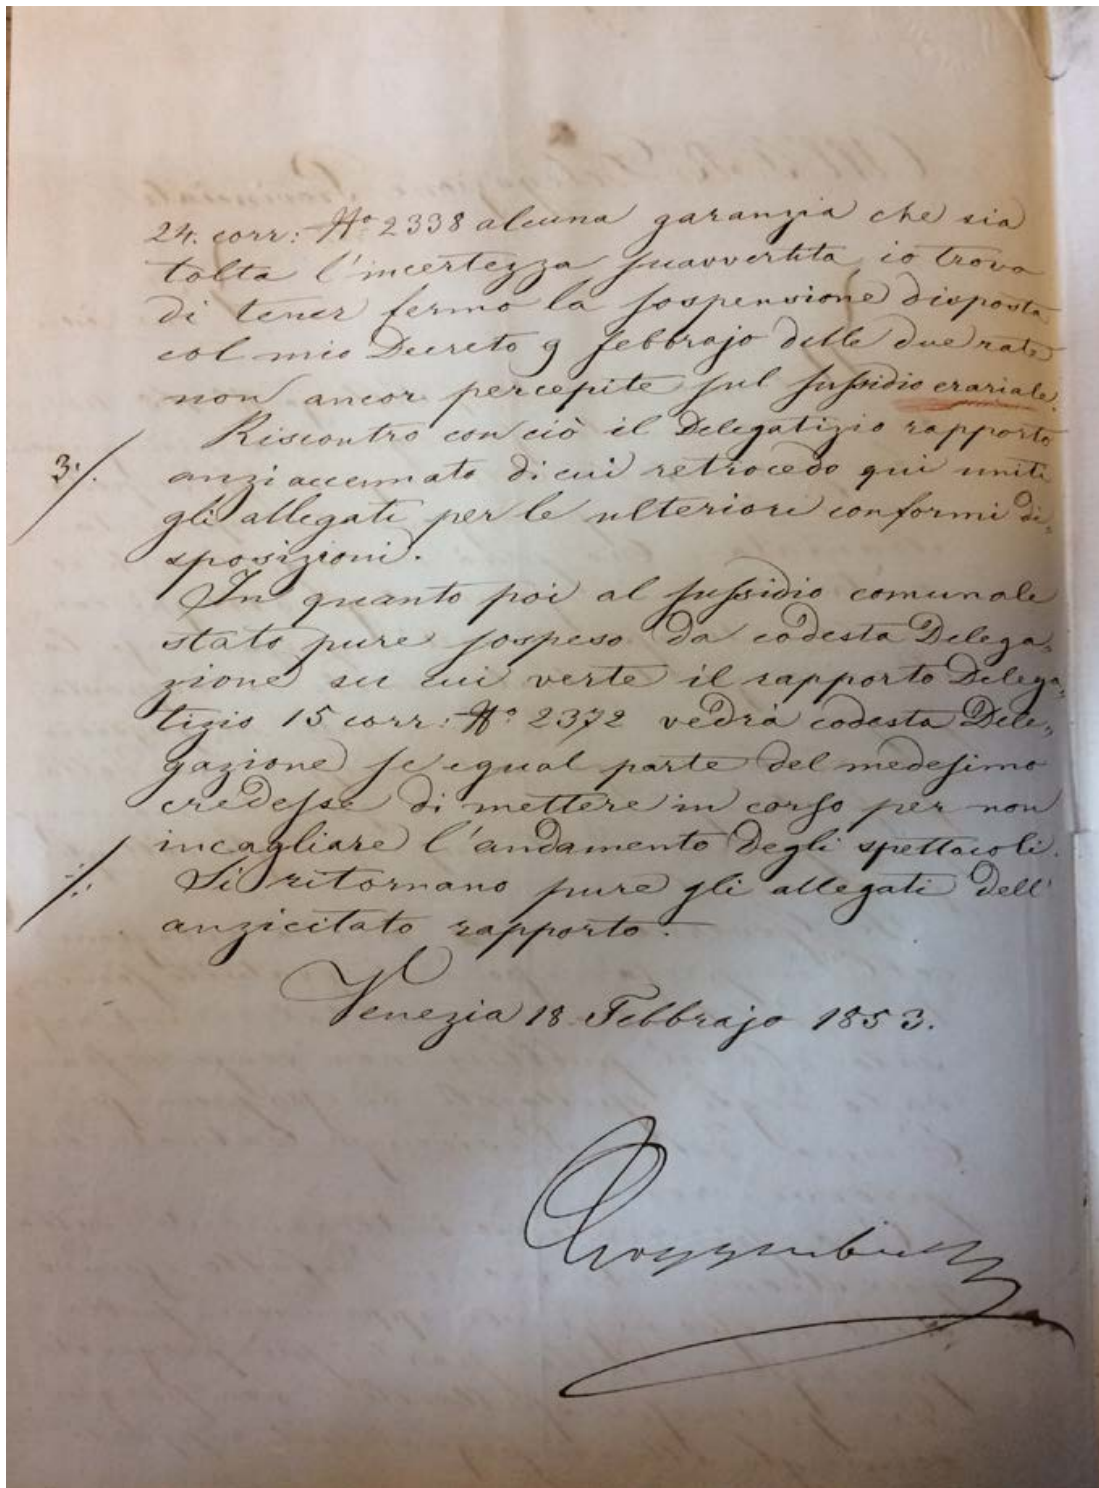 24. corr: N.o 2338 alcuna garanzia che sia
tolta l'incertezza suavvertita, io trovo
di tener fermo la sospensione disposta
col mio Decreto 9 febbrajo delle due rate
non ancor percepite sul sussidio erariale.
Riscontro con ciò il Delegatizio rapporto
3:/. anziaccennato di cui retrocedo qui uniti
gli allegati per le ulteriori conformi di„
sposizioni.
In quanto poi al sussidio comunale
stato pure sospeso da codesta Delega„
zione su cui verte il rapporto Delega„
tizio 15 corr: N.o 2372 vedrà codesta Dele„
gazione se egual parte del medesimo
credesse di mettere in corso per non
incagliare l'andamento degli spettacoli.
·/: Si ritornano pure gli allegati dell'
anzicitato rapporto.
Venezia 18 Febbrajo 1853.